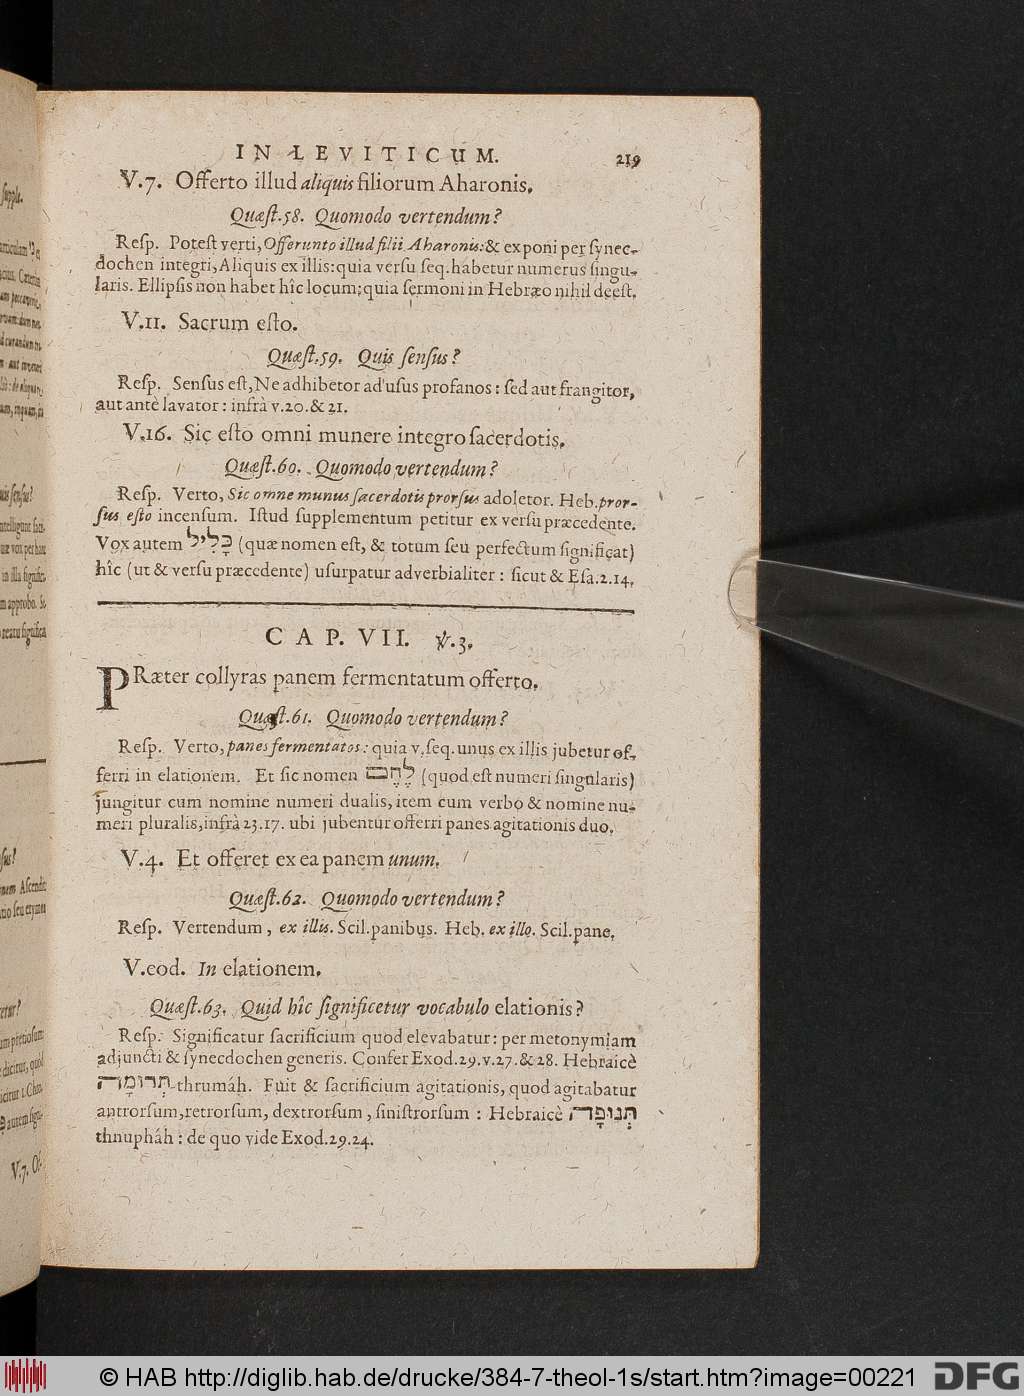 IN LEVITICUM. 219
V.7. Offerto illud aliquis filiorum Aharonis.
Quæſt.58. Quomodo vertendum?
Reſp. Poteſt verti, Offerunto illud filii Aharonis: & exponi per ſynec-
dochen integri, Aliquis ex illis: quia verſu ſeq. habetur numerus ſingu-
laris. Ellipſis non habet hîc locum; quia ſermoni in Hebræo nihil deeſt.
V.11. Sacrum eſto.
Quæſt.59. Quis ſenſus?
Reſp. Senſus eſt, Ne adhibetor ad uſus profanos: ſed aut frangitor,
aut antè lavator: infrà v.20.& 21.
V.16. Sic eſto omni munere integro ſacerdotis.
Quæſt.60. Quomodo vertendum?
Reſp. Verto, Sic omne munus ſacerdotis prorſus adoletor. Heb. pror-
ſus eſto incenſum. Iſtud ſupplementum petitur ex verſu præcedente.
Vox autem כָּלִיל (quæ nomen eſt, & totum ſeu perfectum ſignificat)
hîc (ut & verſu præcedente) uſurpatur adverbialiter: ſicut & Eſa.2.14.
CAP. VII. ℣.3.
PRæter collyras panem fermentatum offerto.
Quæſt.61. Quomodo vertendum?
Reſp. Verto, panes fermentatos: quia v. ſeq. unus ex illis jubetur of-
ferri in elationem. Et ſic nomen לֶחֶם (quod eſt numeri ſingularis)
jungitur cum nomine numeri dualis, item cum verbo & nomine nu-
meri pluralis, infrà 23.17. ubi jubentur offerri panes agitationis duo.
V.4. Et offeret ex ea panem unum.
Quæſt.62. Quomodo vertendum?
Reſp. Vertendum, ex illis. Scil. panibus. Heb. ex illo. Scil. pane.
V.eod. In elationem.
Quæſt.63. Quid hîc ſignificetur vocabulo elationis?
Reſp. Significatur ſacrificium quod elevabatur: per metonymiam
adjuncti & ſynecdochen generis. Confer Exod.29.v.27.& 28. Hebraicè
תְּרוּמָה thrumáh. Fuit & ſacrificium agitationis, quod agitabatur
antrorſum, retrorſum, dextrorſum, ſiniſtrorſum: Hebraicè תְּנוּפָה
thnupháh: de quo vide Exod.29.24.
© HAB http://diglib.hab.de/drucke/384-7-theol-1s/start.htm?image=00221
DFG